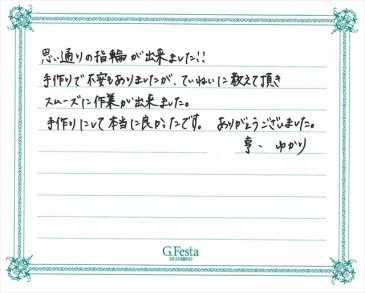 思い通りの指輪が出来ました!!
手作りで不安もありましたが、ていねいに教えて頂き
スムーズに作業が出来ました。
手作りにして本当に良かったです。 ありがとうございました。
亨、ゆかり
G.Festa
DIAMOND